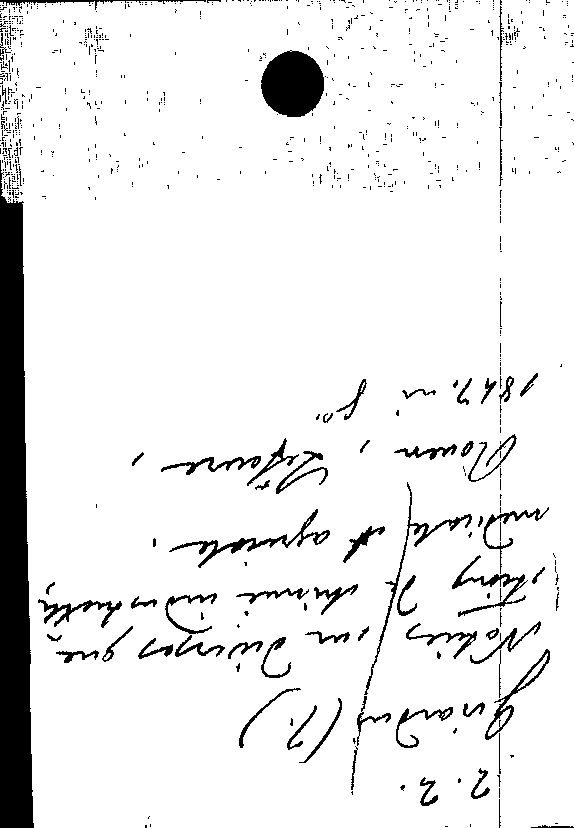 2. 2.
Girardin (J.)
Notices sur diverses ques
tions de chimie industrielle,
médicale et agricole.
Rouen, Lefevre,
1847. in 8°.